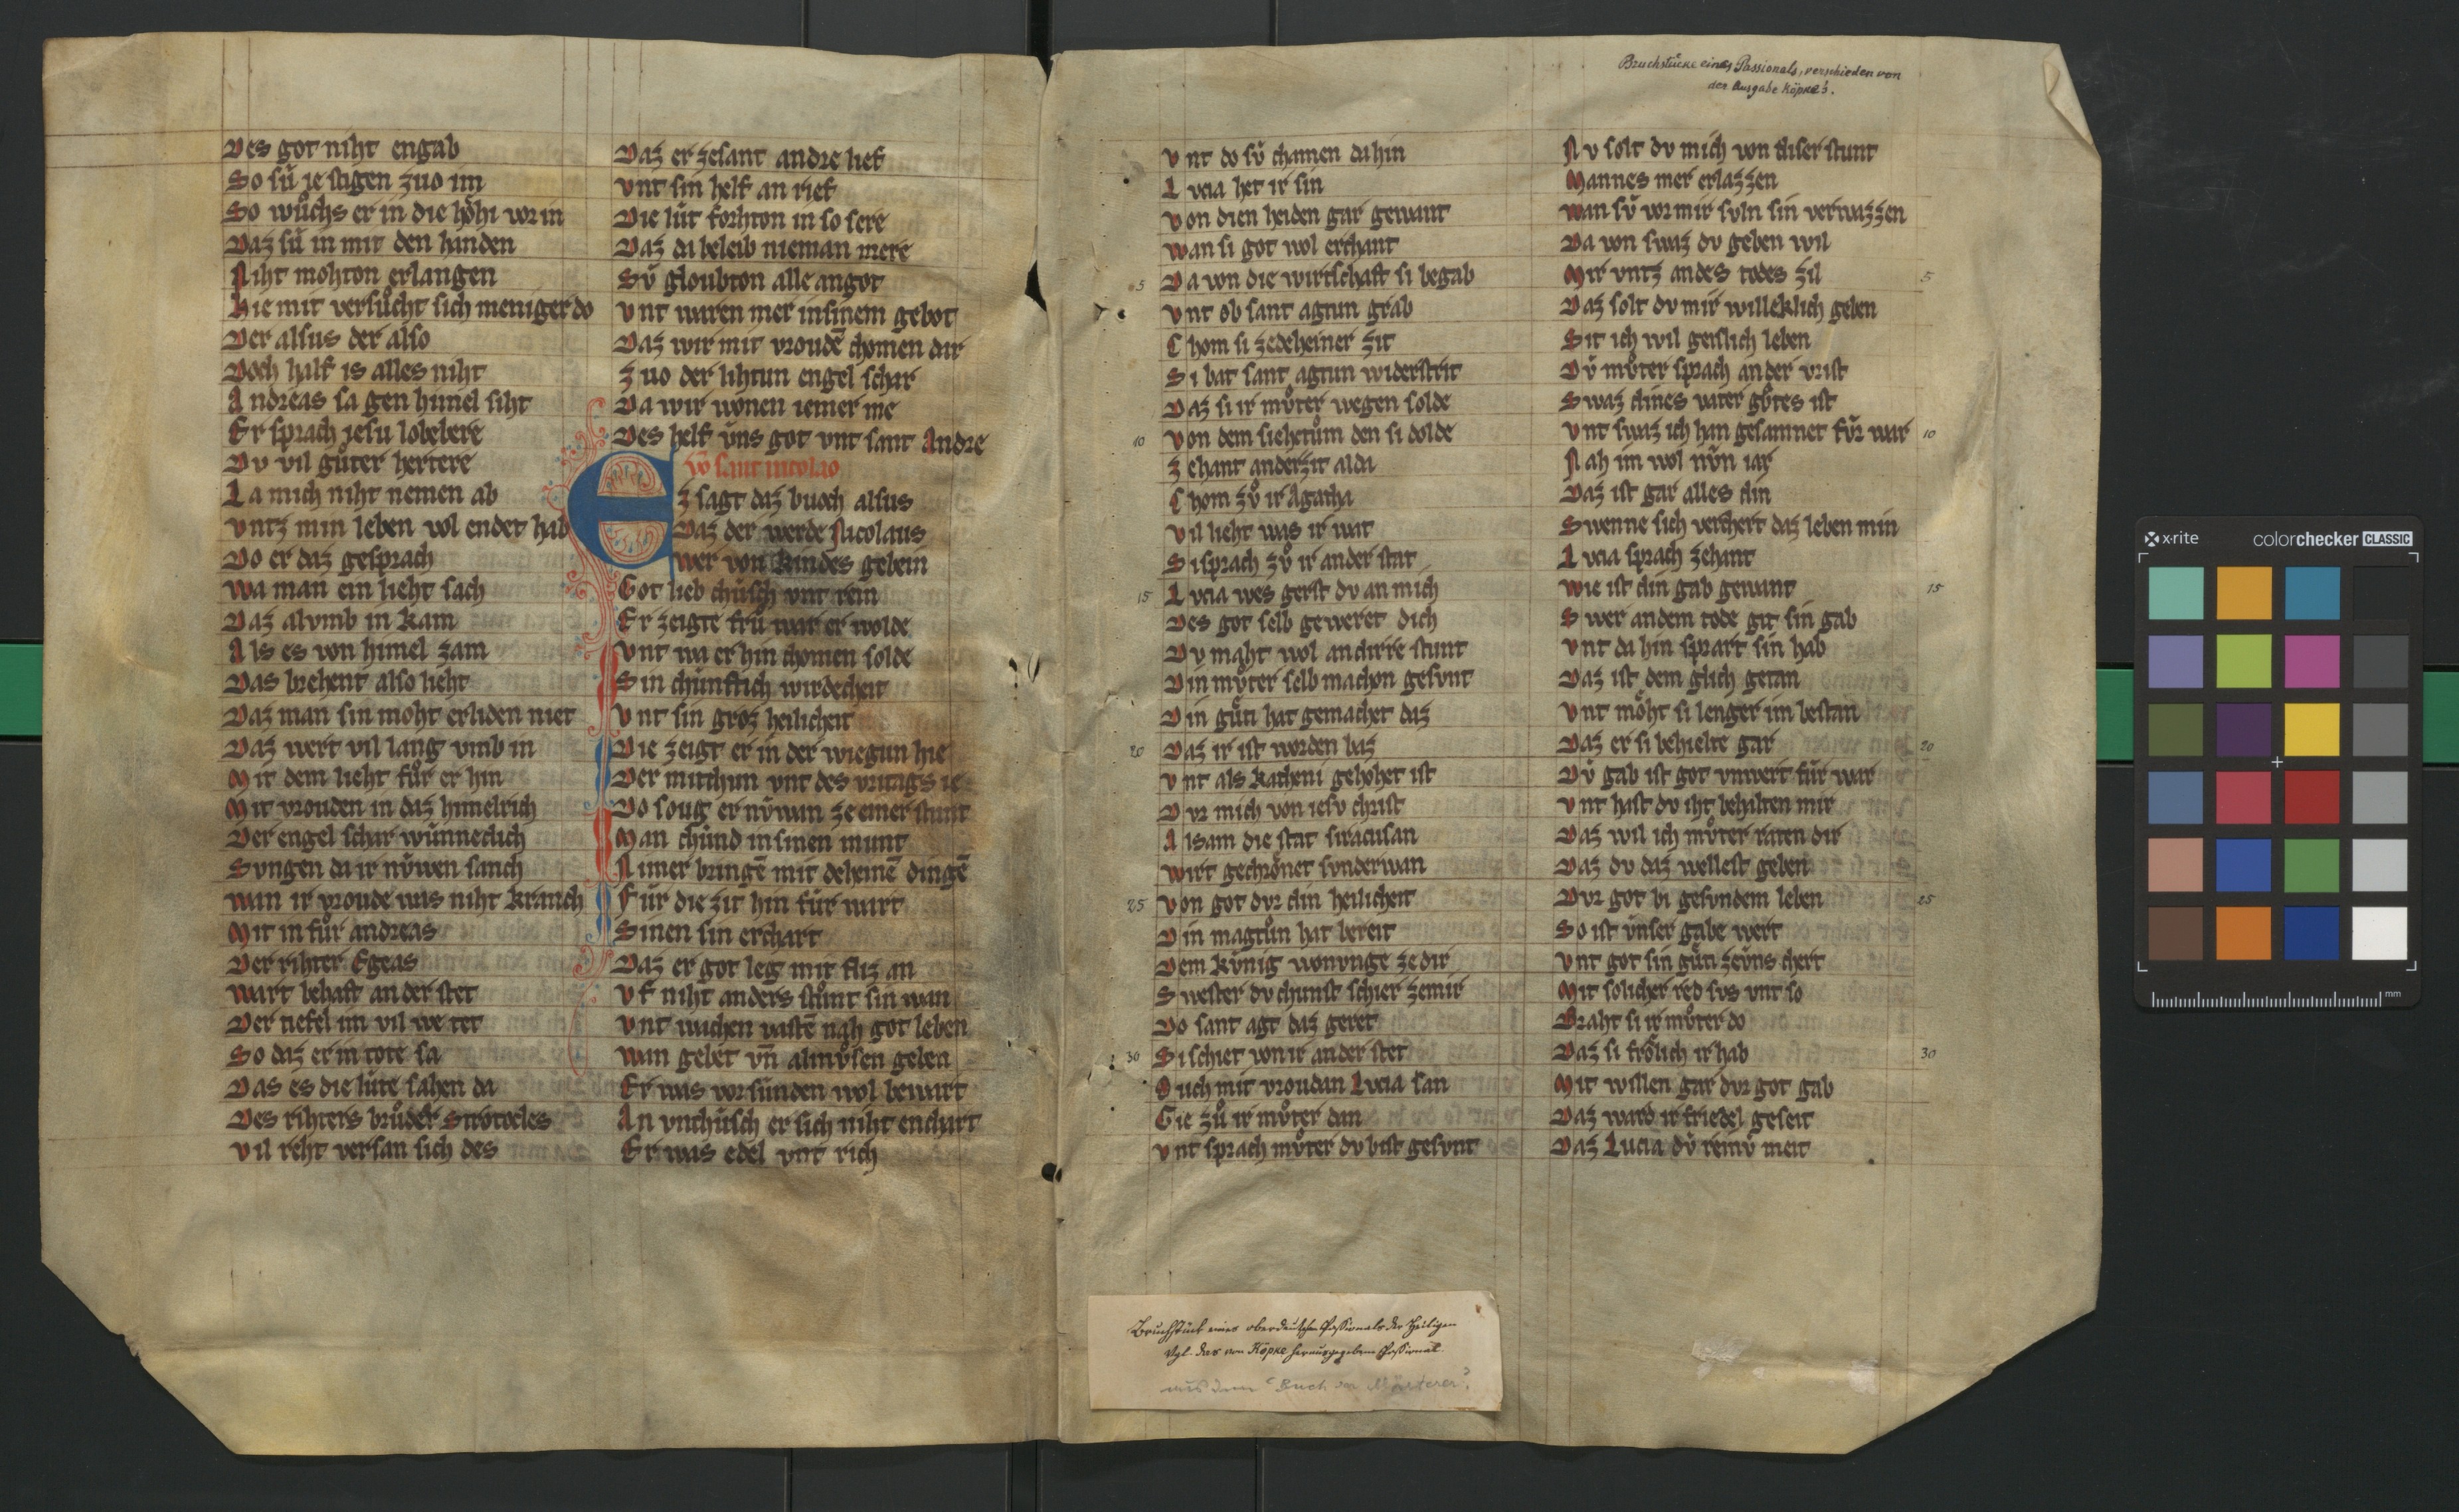 Des got niht engab
So sú ie stigen zuo im
So wůchs er in die hòhi vor in
Daz sú in mit den handen
Niht mohton erlangen
Hie mit versůcht sich meniger do
Der alsus der also
Doch half is alles niht
Andreas sa gen himel siht
Er sprach jesu lobebere
Dv vil gůter hertere
La mich niht nemen ab
vntz min leben wol endet hab
Do er daz gesprach
wa man ein lieht sach
Daz alvmb in kam
Als es von himel zam
Das brehent also lieht
Daz man sin moht erliden niet
Daz wert vil lang vmb in
Mit dem lieht fůr er hin
Mit vrouden in daz himelrich
Der engel schar wúnneclich
Svngen da ir núwen sanch
wan ir vroude was niht kranch
Mit in fůr andreas
Der rihter Egeas
wart behaft an der stet
Der tiefel im vil we tet
So daz er in tote sa
Das es die lúte sahen da
Des rihters brůder Strotocles
vil reht versan sich des
Daz er zesant andre lief
vnt sin helf an rief
Die lút forhton in so sere
Daz da beleib nieman mere
Sú gloubton alle an got
vnt waren mer in sinem gebot
Daz wir mit vroudē chomen dar
Zuo der lihtun engel schar
Da wir wonen iemer me
Des helf úns got vnt sant Andre
vō sant nicolao
Ez sagt daz buoch alsus
Daz der werde Nicolaus
wer von kindes gebein
Got lieb chúsch vnt rein
Er zeigte frů war er wolde
vnt wa er hin chomen solde
Sin chúnftich wirdecheit
vnt sin groz heilicheit
Die zeigt er in der wiegun hie
Der mitchun vnt des vritags ie
Do soug er núwan ze einer stunt
Man chund in sinen munt
Nimer bringē mit deheinē dingē
Fúr die zit hin fúr wart
Sinen sin er chart
Daz er got leg mit fliz an
vf niht anders stůnt sin wan
vnt wachen vastē nah got leben
wan gebet vn̄ almůsen geben
Er was vor súnden wol bewart
An vnchúsch er sich niht enchart
Er was edel vnt rich
Bruchstücke eines Passionals, verschieden von
der Ausgabe Köpke's.
vnt do sú chamen da hin
Lvcia het ir sin
von dien heiden gar gewant
wan si got wol erchant
5 Da von die wirtschaft si begab
vnt ob sant agtun grab
Chom si zedeheiner zit
Si bat sant agtun widerstrit
Daz si ir můter wegen solde
10 von dem siehetům den si dolde
Zehant anderzit alda
Chom zů ir Agatha
vil lieht was ir wat
Si sprach zů ir an der stat
15 Lvcia wes gerst dv an mich
Des got selb geweret dich
Dv maht wol an dirre stunt
Din můter selb machon gesvnt
Din gůti hat gemachet daz
20 Daz ir ist worden baz
vnt als katheni gehohet ist
Dvr mich von iesv christ
Alsam die stat siracusan
wirt gechrónet svnderwan
25 von got dvr din heilicheit
Din magtům hat bereit
Dem kúnig wonvnge ze dir
Swester dv chunst schier zemir
Do sant agt daz geret
30 Si schiet von ir an der stet
Such mit vroudan Lvcia san
Gie zů ir můter dan
vnt sprach můter dv bist gesvnt
Nv solt dv mich von diser stunt
Mannes mer erlazzen
wan sú vor mir svln sin verwazzen
Da von swaz dv geben wil
5 Mir vntz an des todes zil
Daz solt dv mir willeklich geben
Sit ich wil geislich leben
Dú můter sprach an der vrist
Swaz dines vater gůtes ist
10 vnt swaz ich han gesamnet fúr war
Nah im wol nún iar
Daz ist gar alles din
Swenne sich verchert daz leben min
Lvcia sprach zehant
15 wie ist din gab gewant
Swer an dem tode git sin gab
vnt da hin spart sin hab
Daz ist dem glich getan
vnt mòht si lenger im bestan
20 Daz er si behielte gar
Dú gab ist got vnwert fúr war
vnt hast dv iht behalten mir
Daz wil ich můter raten dir
Daz dv daz wellest geben
25 Dvr got bi gesvndem leben
So ist únser gabe wert
vnt got sin gůti zeúns chert
Mit solicher red svs vnt so
Braht si ir můter do
30 Daz si frólich ir hab
Mit willen gar dvr got gab
Daz ward ir friedel geseit
Daz Lucia dú reinú meit
Bruchstück eines oberdeutschen Passionals der Heiligen
Vgl. das von Köpke herausgegebene Passional.
aus dem "Buch der Märterer".
x-rite colorchecker CLASSIC
mm